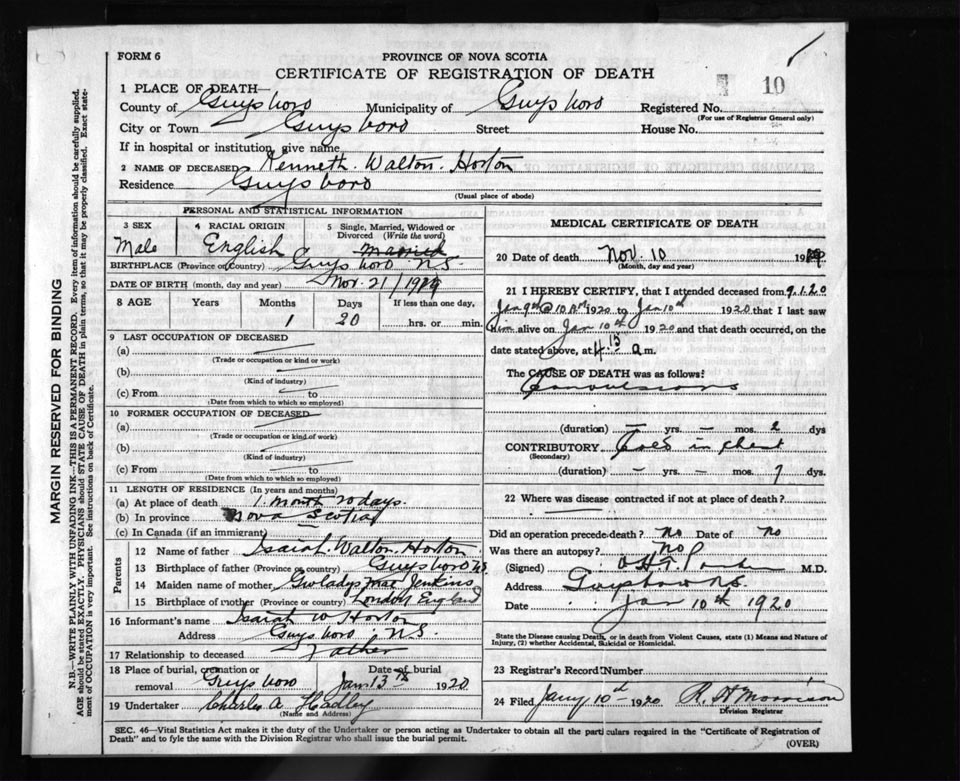 FORM 6
PROVINCE OF NOVA SCOTIA
CERTIFICATE OF REGISTRATION OF DEATH
10
1 PLACE OF DEATH—
County of Guysboro Municipality of Guysboro Registered No.
(For use of Registrar General only)
City or Town Guysboro Street House No.
If in hospital or institution, give name
2 NAME OF DECEASED Kenneth Walton Horton
Residence Guysboro
(Usual place of abode)
PERSONAL AND STATISTICAL INFORMATION
3 SEX 4 RACIAL ORIGIN 5 Single, Married, Widowed or Divorced (Write the word)
Male English Married
BIRTHPLACE (Province or Country) Guysboro N.S.
DATE OF BIRTH (month, day and year) Nov. 21/1919
8 AGE Years Months Days If less than one day,
1 20 hrs. or min.
9 LAST OCCUPATION OF DECEASED
(a)
(Trade or occupation or kind or work)
(b)
(Kind of industry)
(c) From to
(Date from which to which so employed)
10 FORMER OCCUPATION OF DECEASED
(a)
(Trade or occupation or kind of work)
(b)
(Kind of industry)
(c) From to
(Date from which to which so employed)
11 LENGTH OF RESIDENCE (In years and months)
(a) At place of death 1 month 20 days
(b) In province Nova Scotia
(c) In Canada (if an immigrant)
Parents
12 Name of father Isaiah Walton Horton
13 Birthplace of father (Province or country) Guysboro N.S.
14 Maiden name of mother Gwladys Mae Jenkins
15 Birthplace of mother (Province or country) London England
16 Informant's name Isaiah W Horton
Address Guysboro N.S.
17 Relationship to deceased Father
18 Place of burial, cremation or Date of burial
removal Guysboro Jan. 13th 1920
19 Undertaker Charles A Hadley
(Name and Address)
MEDICAL CERTIFICATE OF DEATH
20 Date of death Nov 10 19
(Month, day and year)
21 I HEREBY CERTIFY, that I attended deceased from 9.1.20
Jan 9th @ 10 A.M. 1920 to Jan 10th 1920 that I last saw
him alive on Jan 10th 1920 and that death occurred, on the
date stated above, at 4.15 a m.
The CAUSE OF DEATH was as follows:
Convulsions
(duration) — yrs. — mos. 2 dys
CONTRIBUTORY Cold in chest
(Secondary)
(duration) — yrs. — mos. 7 dys.
22 Where was disease contracted if not at place of death?
Did an operation precede death? No Date of No
Was there an autopsy? No
(Signed) M.D.
Address Guysboro N.S.
Date Jan 10th 1920
State the Disease causing Death, or in death from Violent Causes, state (1) Means and Nature of
Injury, (2) whether Accidental, Suicidal or Homicidal.
23 Registrar's Record Number
24 Filed Jany 10th 1920 R. H Morrison
Division Registrar
SEC. 46—Vital Statistics Act makes it the duty of the Undertaker or person acting as Undertaker to obtain all the particulars required in the "Certificate of Registration of
Death" and to fyle the same with the Division Registrar who shall issue the burial permit.
(OVER)
MARGIN RESERVED FOR BINDING
N.B.—WRITE PLAINLY WITH UNFADING INK—THIS IS A PERMANENT RECORD. Every item of information should be carefully supplied.
AGE should be stated EXACTLY. PHYSICIANS should STATE CAUSE OF DEATH in plain terms, so that it may be properly classified. Exact statement
of OCCUPATION is very important. See instructions on back of Certificate.